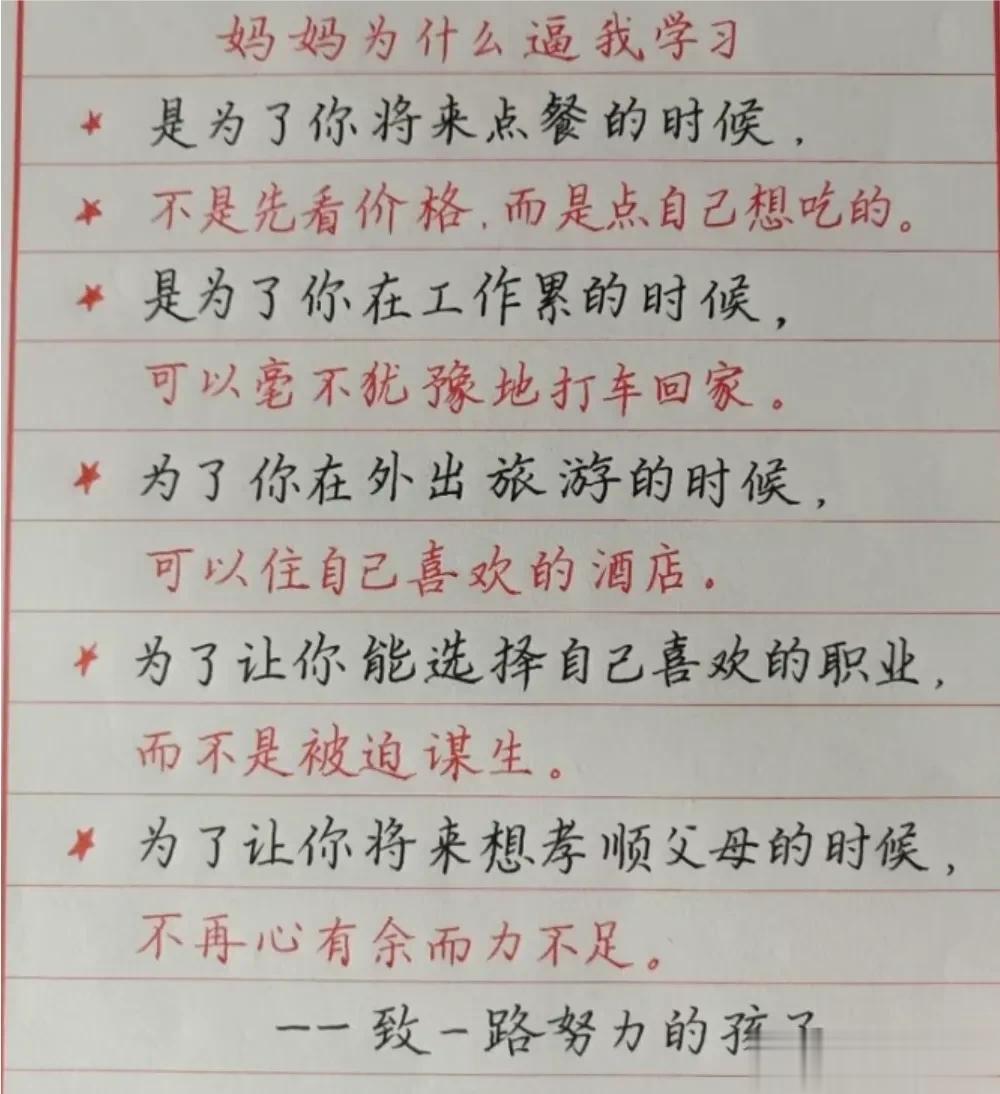 妈妈为什么逼我学习
★ 是为了你将来点餐的时候，
★ 不是先看价格，而是点自己想吃的。
★ 是为了你在工作累的时候，
可以毫不犹豫地打车回家。
★ 为了你在外出旅游的时候，
可以住自己喜欢的酒店。
★ 为了让你能选择自己喜欢的职业，
而不是被迫谋生。
★ 为了让你将来想孝顺父母的时候，
不再心有余而力不足。
——致一路努力的孩子